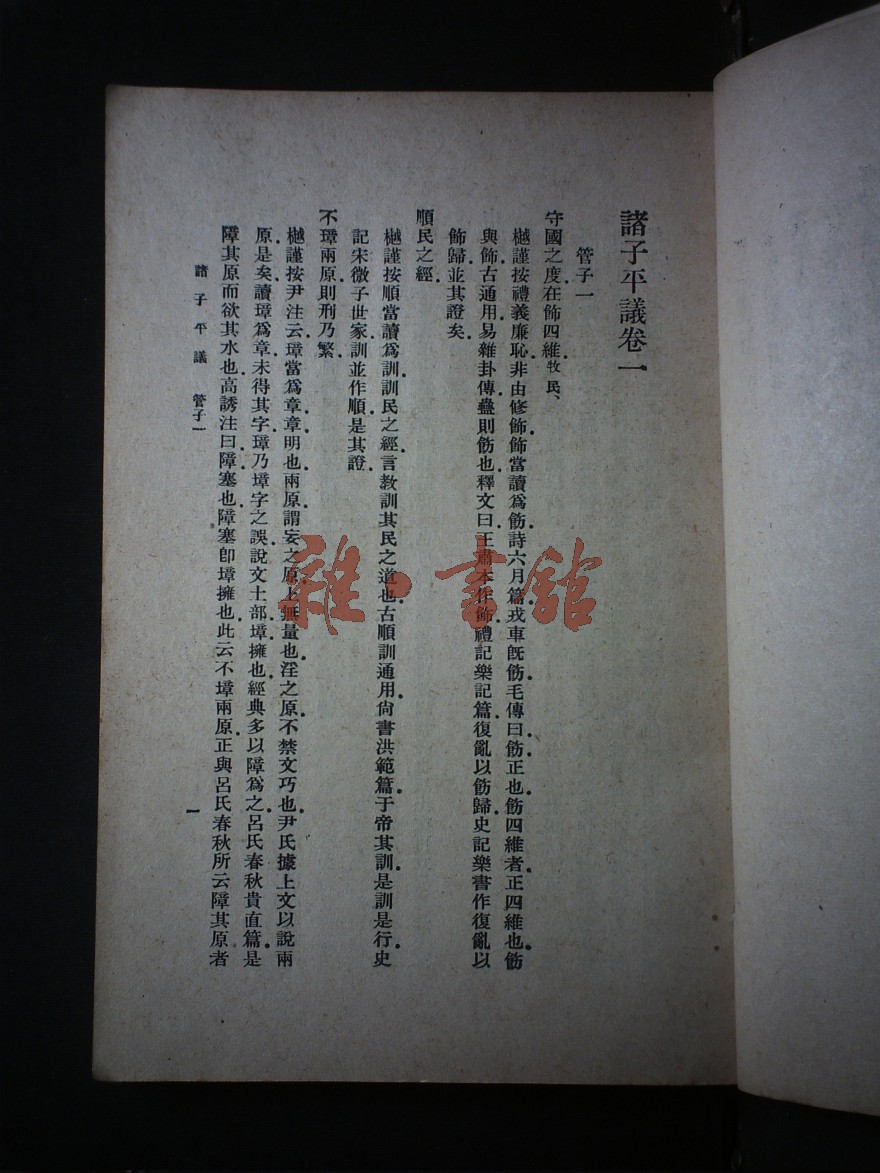 諸子平議卷一
管子一
守國之度在飾四維牧民、
樾謹按禮義廉恥非由修飾飾當讀爲飭詩六月篇戎車旣飭毛傳曰飭正也飭四維者正四維也飭
與飾古通用易雜卦傳蠱則飭也釋文曰王肅本作飾禮記樂記篇復亂以飭歸史記樂書作復亂以
飾歸並其證矣
順民之經
樾謹按順當讀爲訓訓民之經言敎訓其民之道也古順訓通用尙書洪範篇于帝其訓是訓是行史
記宋微子世家訓並作順是其證
不璋兩原則刑乃繁
樾謹按尹注云璋當爲章章明也兩原謂妄之原上無量也淫之原不禁文巧也尹氏據上文以說兩
原是矣讀璋爲章未得其字璋乃墇字之誤說文土部墇擁也經典多以障爲之呂氏春秋貴直篇是
障其原而欲其水也高誘注曰障塞也障塞卽墇擁也此云不墇兩原正與呂氏春秋所云障其原者
諸子平議 管子一
一
雜·書館